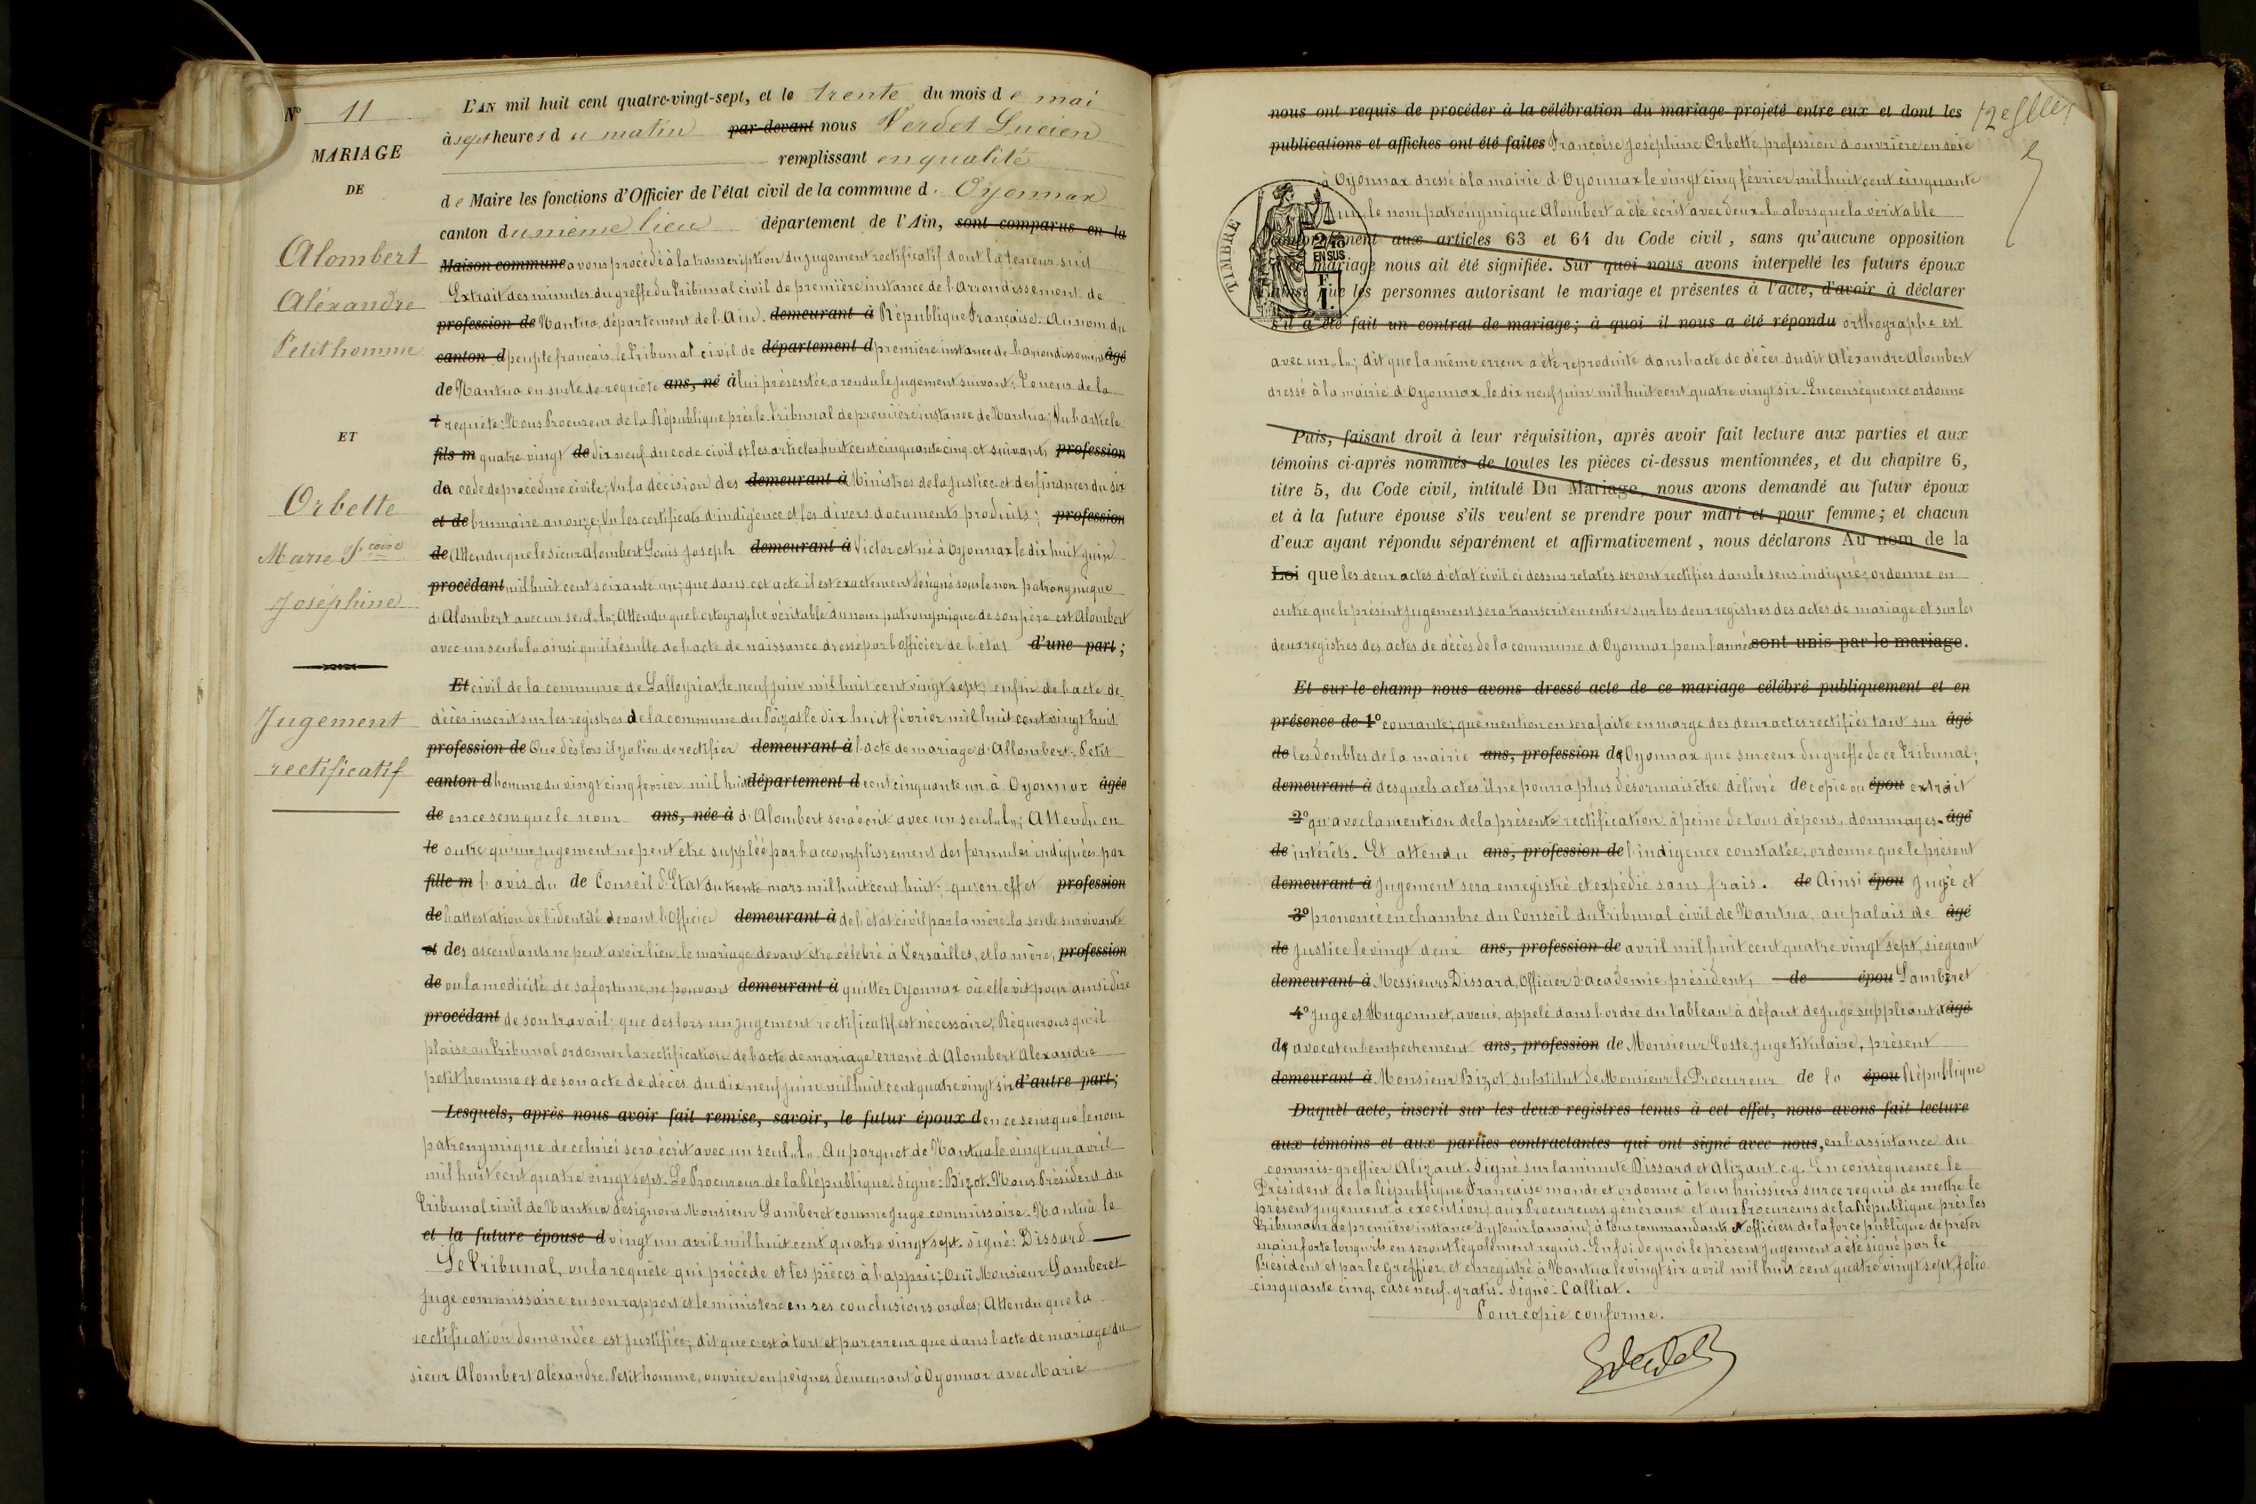 N° 11
MARIAGE
DE
Alombert
Aléxandre
Petit homme
ET
Orbette
Marie Fcoise
Joséphine
Jugement
rectificatif
L'AN mil huit cent quatre-vingt-sept, et le trente du mois de mai
à sept heures du matin par-devant nous Verdet Lucien
remplissant en qualité
de Maire les fonctions d'Officier de l'état civil de la commune d'Oyonnax
canton du même lieu département de l'Ain, sont comparus en la
Maison commune avons procédé à la transcription du jugement rectificatif dont la teneur suit
Extrait des minutes du greffe du Tribunal civil de première instance de l'Arrondissement de
profession de Nantua, département de l'Ain. demeurant à République Française. Au nom du
canton d peuple français, le Tribunal civil de département d première instance de l'arrondissement âgé
de Nantua en suite de requête ans, né à lui présentée a rendu le jugement suivant: Teneur de la
t requête: Nous Procureur de la République près le Tribunal de première instance de Nantua; Vu l'article
fils m quatre vingt de dix neuf du code civil et les articles huit cent cinquante cinq et suivants profession
du code de procédure civile; Vu la décision des demeurant à Ministres de la justice et des finances du six
et de brumaire an onze; Vu les certificats d'indigence et les divers documents produits; profession
de Attendu que le sieur Alombert Louis Joseph demeurant à Victor est né à Oyonnax le dix huit juin
procédant mil huit cent soixante un; que dans cet acte il est exactement désigné sous le nom patronymique
d'Alombert avec un seul "l"; Attendu que l'ortographe véritable du nom patronymique de son père est Alombert
avec un seul "l" ainsi qu'il résulte de l'acte de naissance dressé par l'officier de l'état d'une part;
Et civil de la commune de Lalleyriat, le neuf juin mil huit cent vingt sept; enfin de l'acte de
décès inscrit sur les registres de la commune du Poizat le dix huit février mil huit cent vingt huit
profession de Que dès lors il y a lieu de rectifier demeurant à l'acte de mariage d'Allombert-Petit
canton d homme du vingt cinq février mil huit département d cent cinquante un à Oyonnax âgée
de en ce sens que le nom ans, née à d'Alombert sera écrit avec un seul "l"; Attendu en
le outre qu'un jugement ne peut être suppléé par l'accomplissement des formules indiquées par
fille m l'avis du de Conseil d'Etat du trente mars mil huit cent huit; qu'en effet profession
de l'attestation de l'identité devant l'Officier demeurant à de l'état civil par la mère la seule survivante
et des ascendants ne peut avoir lieu le mariage devant être célébré à Versailles, et la mère, profession
de vu la modicité de sa fortune, ne pouvant demeurant à quitter Oyonnax où elle vit pour ainsi dire
procédant de son travail; que des lors un jugement rectificatif est nécessaire, Requerons qu'il
plaise au Tribunal ordonner la rectification de l'acte de mariage erroné d'Alombert Alexandre
petit homme et de son acte de décès du dix neuf juin mil huit cent quatre vingt six d'autre part;
Lesquels, après nous avoir fait remise, savoir, le futur époux d en ce sens que le nom
patronymique de celui ci sera écrit avec un seul "l". Au parquet de Nantua le vingt un avril
mil huit cent quatre vingt sept. Le Procureur de la République. Signé: Bizot. Nous Président du
Tribunal civil de Nantua désignons Monsieur Lamberet comme juge commissaire. Nantua le
et la future épouse d vingt un avril mil huit cent quatre vingt sept. Signé: Dissard
Le Tribunal, vu la requête qui précède et les pièces à l'appui; Ouï Monsieur Lamberet
Juge commissaire en son rapport et le ministère en ses conclusions orales; Attendu que la
rectification demandée est justifiée; dit que c'est à tort et par erreur que dans l'acte de mariage du
sieur Alombert Aléxandre Petit homme, ouvrier en peignes demeurant à Oyonnax avec Marie
nous ont requis de procéder à la célébration du mariage projeté entre eux et dont les
publications et affiches ont été faites Françoise Joséphine Orbette, profession d'ouvrière en soie
à Oyonnax dressé à la mairie d'Oyonnax le vingt cinq février mil huit cent cinquante
un, le nom patronymique Alombert a été écrit avec deux "l" alors que la véritable
TIMBRE
2/10
EN SUS
F.
1.
conformément aux articles 63 et 64 du Code civil, sans qu'aucune opposition
mariage nous ait été signifiée. Sur quoi nous avons interpellé les futurs époux
ainsi que les personnes autorisant le mariage et présentes à l'acte, d'avoir à déclarer
s'il a été fait un contrat de mariage; à quoi il nous a été répondu orthographe est
avec un "l"; dit que la même erreur a été reproduite dans l'acte de décès dudit Aléxandre Alombert
dressé à la mairie d'Oyonnax le dix neuf juin mil huit cent quatre vingt six. En conséquence ordonne
Puis, faisant droit à leur réquisition, après avoir fait lecture aux parties et aux
témoins ci-après nommés de toutes les pièces ci-dessus mentionnées, et du chapitre 6,
titre 5, du Code civil, intitulé Du Mariage, nous avons demandé au futur époux
et à la future épouse s'ils veulent se prendre pour mari et pour femme; et chacun
d'eux ayant répondu séparément et affirmativement, nous déclarons Au nom de la
Loi que les deux actes d'état civil ci dessus relatés seront rectifiés dans le sens indiqué; ordonne en
outre que le présent jugement sera transcrit en entier sur les deux registres des actes de mariage et sur les
deux registres des actes de décès de la commune d'Oyonnax pour l'année sont unis par le mariage.
Et sur-le-champ nous avons dressé acte de ce mariage célébré publiquement et en
présence de 1° courante; que mention en sera faite en marge des deux actes rectifiés tant sur âgé
de les doubles de la mairie ans, profession d'Oyonnax que sur ceux du greffe de ce Tribunal;
demeurant à desquels actes il ne pourra plus désormais être délivré de copie ou épou extrait
2° qu'avec la mention de la présente rectification à peine de tous dépens, dommages- âgé
de intérêts. Et attendu ans, profession de l'indigence constatée, ordonne que le présent
demeurant à jugement sera enregistré et expédié sans frais. de Ainsi épou jugé et
3° prononcé en chambre du Conseil du Tribunal civil de Nantua, au palais de âgé
de justice le vingt deux ans, profession de avril mil huit cent quatre vingt sept, siégeant
demeurant à Messieurs Dissard, Officier d'académie, président, de épou Lamberet
4° juge et Hugonnet, avoué, appelé dans l'ordre du tableau à défaut de juge suppléant et âgé
d'avocat en l'empechement ans, profession de Monsieur Coste juge titulaire, présent
demeurant à Monsieur Bizot substitut de Monsieur le Procureur de la épou République
Duquel acte, inscrit sur les deux registres tenus à cet effet, nous avons fait lecture
aux témoins et aux parties contractantes qui ont signé avec nous, en l'assistance du
commis-greffier Alizant. Signé sur la minute Dissard et Alizant c.g. En conséquence le
Président de la République Française mande et ordonne à tous huissiers sur ce requis de mettre le
présent jugement à exécution; aux Procureurs généraux et aux Procureurs de la République près les
Tribunaux de première instance d'y tenir la main; à tous commandants & officiers de la force publique de prêter
main forte lorsqu'ils en seront légalement requis. En foi de quoi le présent jugement a été signé par le
Président et par le Greffier, et enregistré à Nantua le vingt six avril mil huit cent quatre vingt sept, folio
cinquante cinq, case neuf. gratis. Signé: Calliat.
Pour copie conforme.